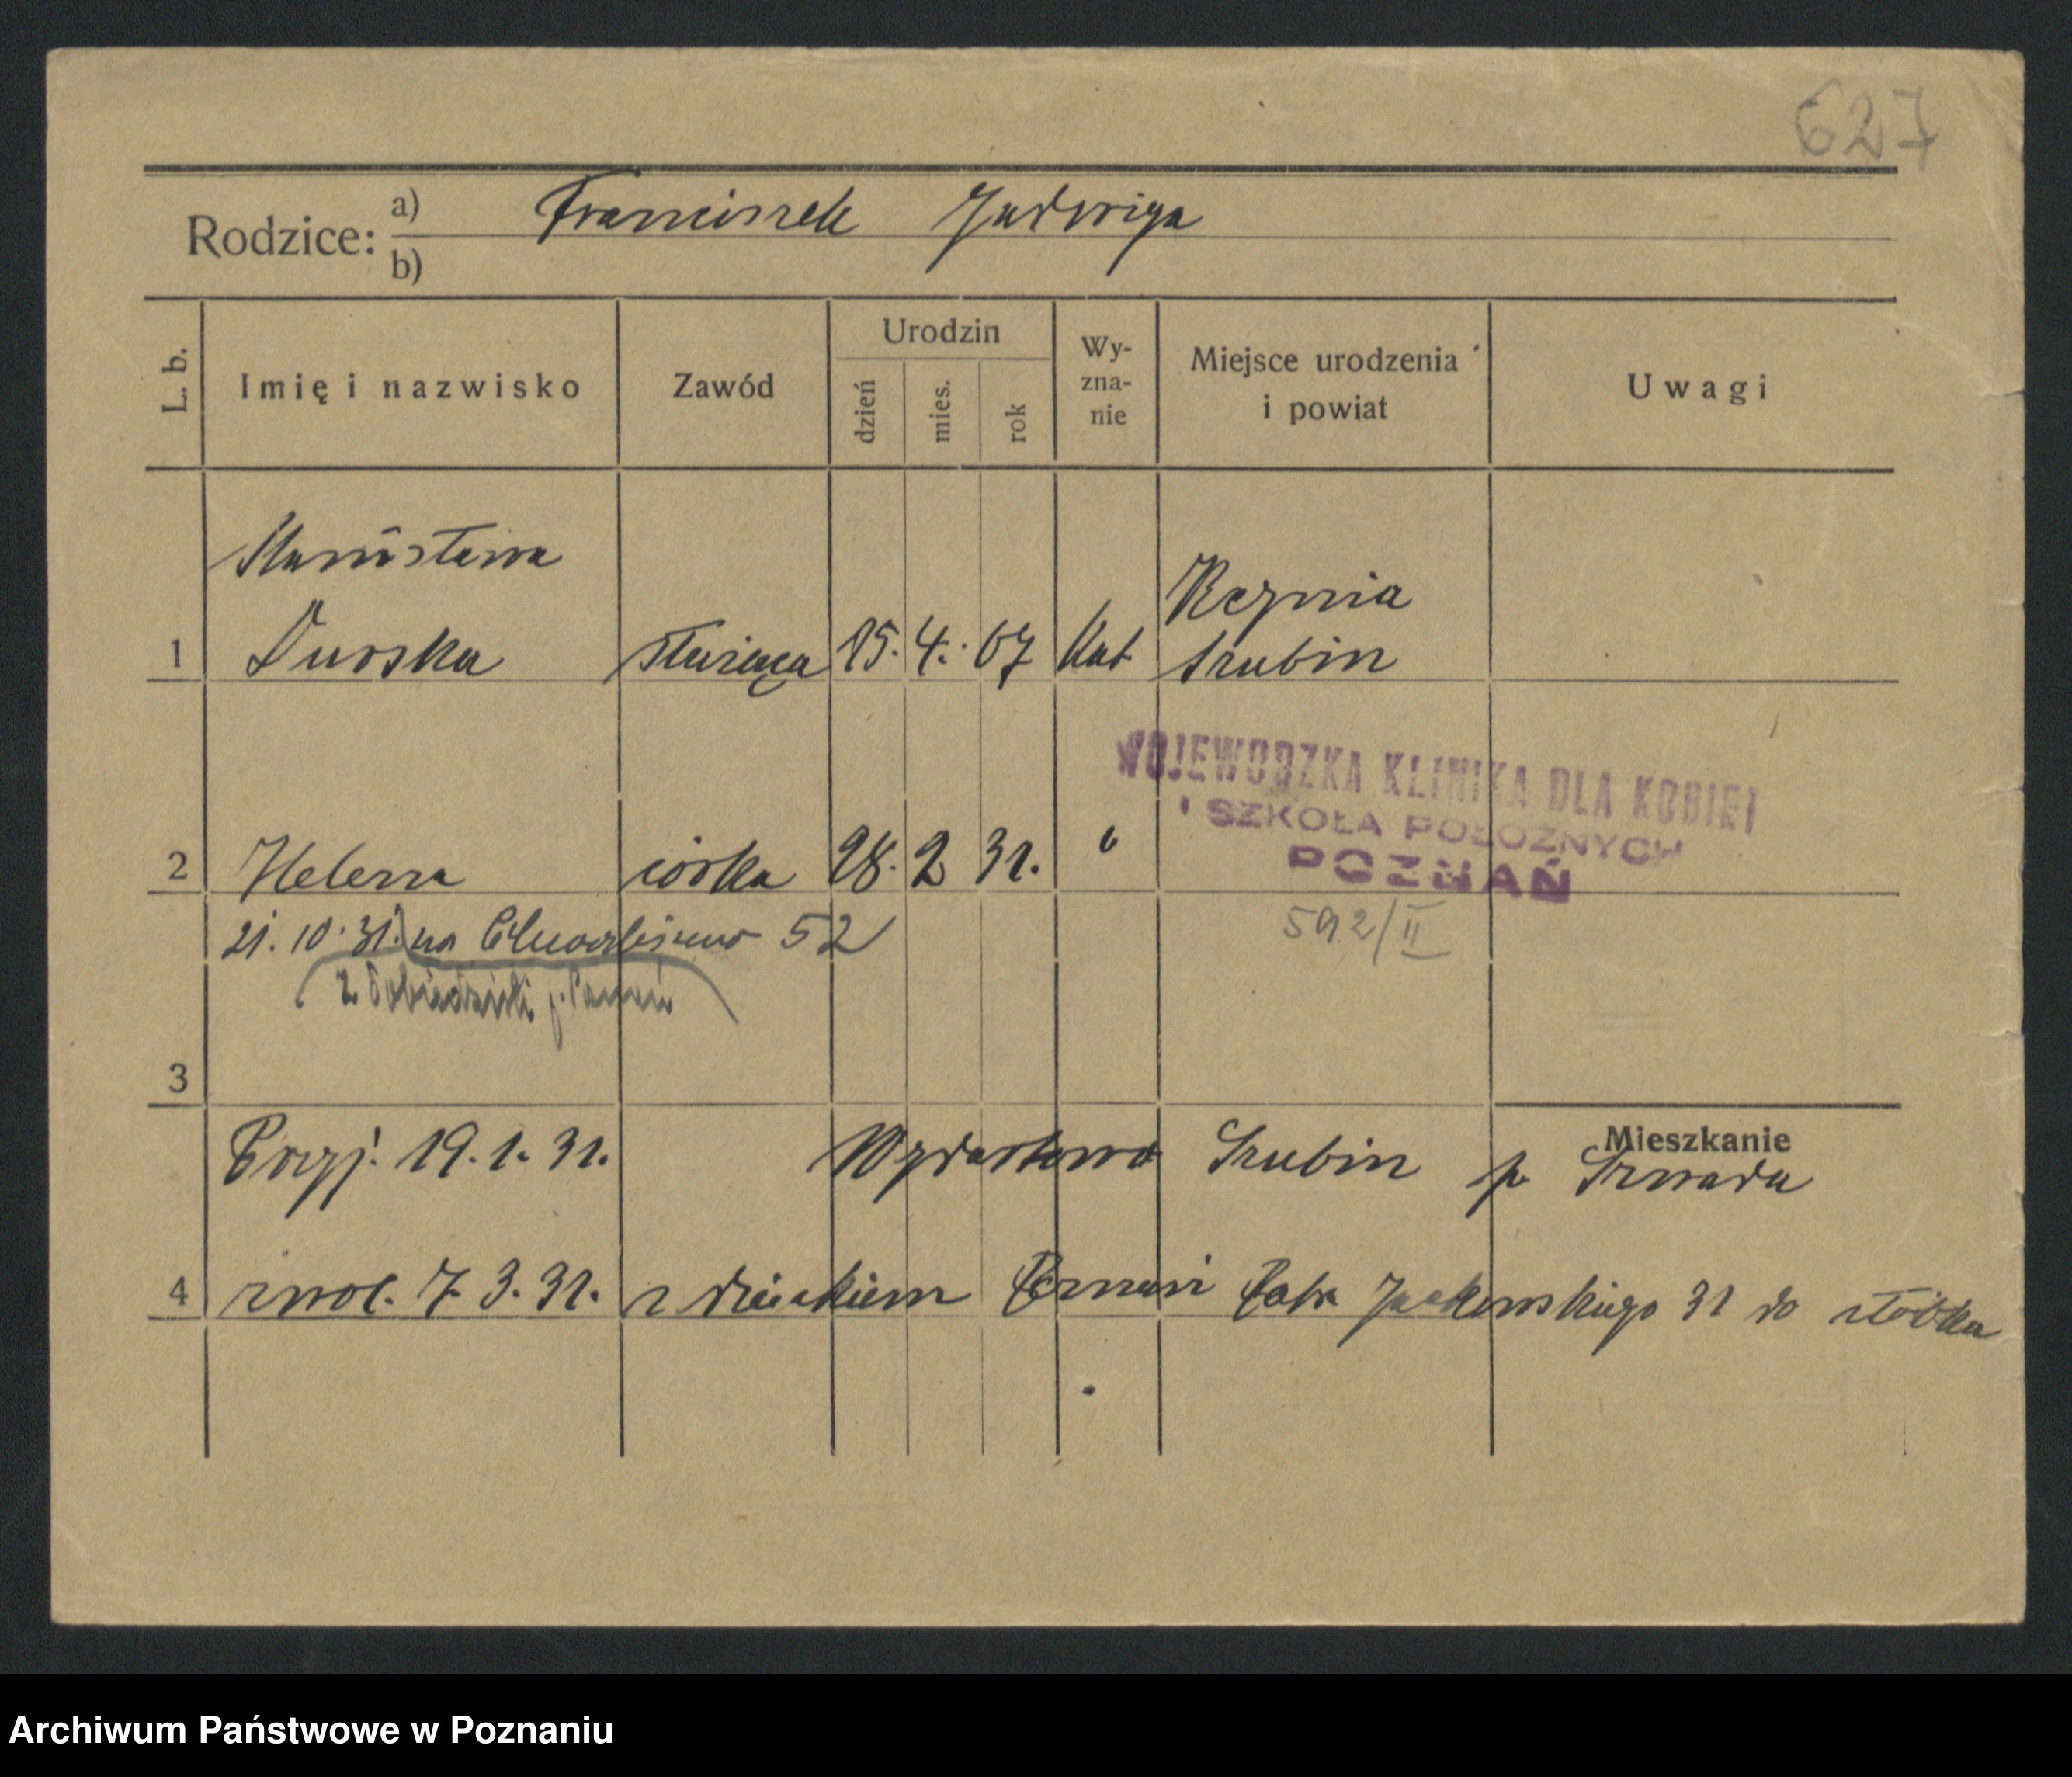 627
Rodzice: a) Franciszek Jadwiga
b)
L. b. Imię i nazwisko Zawód Urodzin dzień mies. rok Wy-zna-nie Miejsce urodzenia i powiat Uwagi
Stanisława
1 Durska służąca 15. 4. 07 Kat
Szubin
WOJEWÓDZKA KLINIKA DLA KOBIET
I SZKOŁA POŁOŻNYCH
POZNAŃ
2 Helena córka 28. 2 31. "
21. 10. 31. na 52
592/II
z Pobiedzisk p. Poznań
3
Mieszkanie
Przyj. 19. 1. 31. Szubin p. Szwada
4 zwol. 7. 3. 31. z dzieckiem Poznań Patr. Jackowskiego 31 do żłóbka
Archiwum Państwowe w Poznaniu